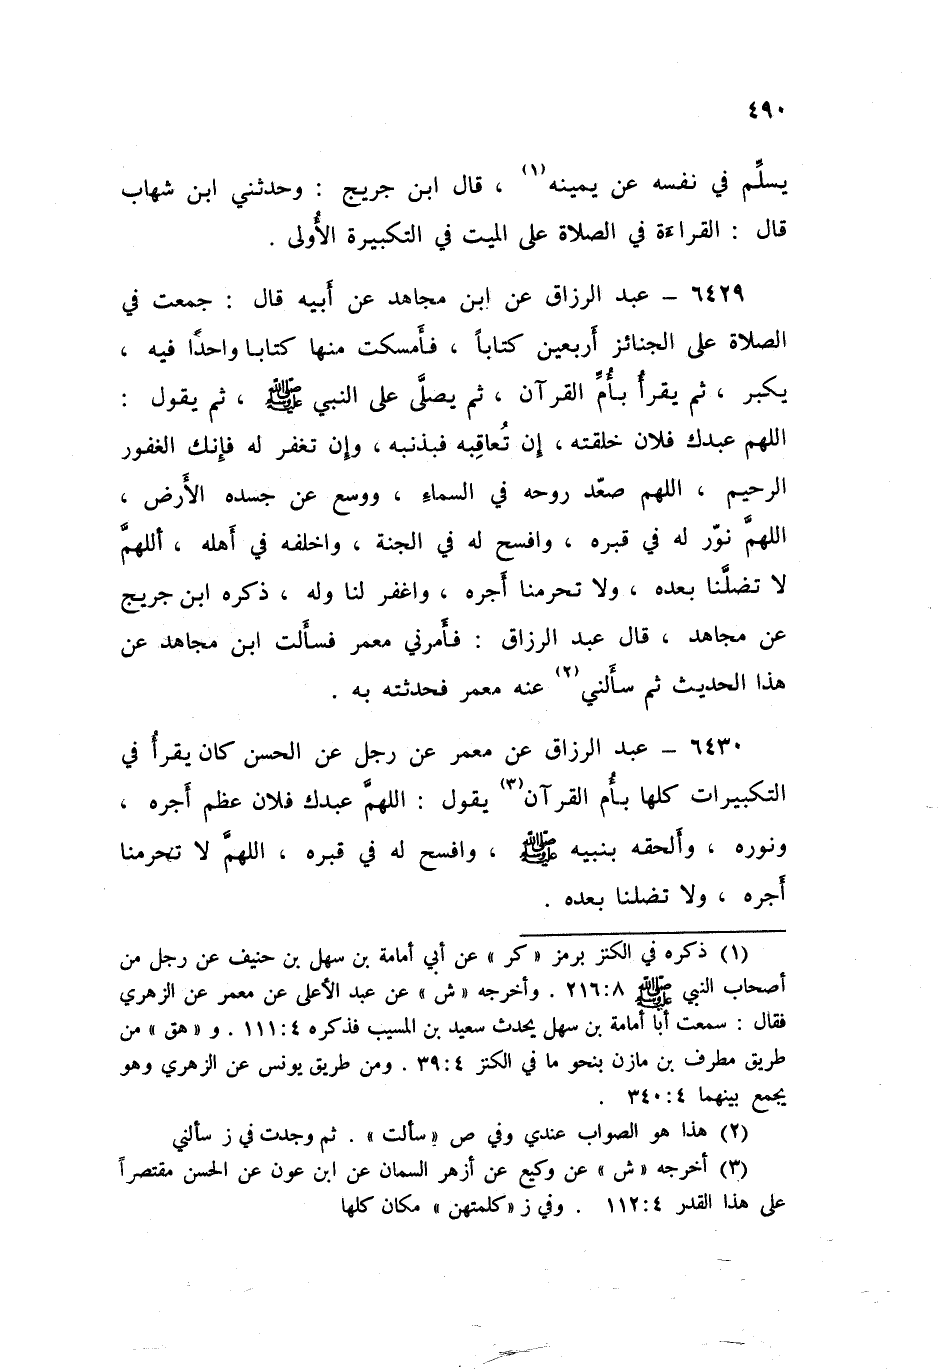 ٤٩٠
يسلِّم في نفسه عن يمينه(١) ، قال ابن جريج : وحدثني ابن شهاب
قال : القراءة في الصلاة على الميت في التكبيرة الأُولى .
٦٤٢٩ – عبد الرزاق عن ابن مجاهد عن أَبيه قال : جمعت في
الصلاة على الجنائز أَربعين كتاباً ، فأَمسكت منها كتابا واحدًا فيه ،
يكبر ، ثم يقرأُ بأُمِّ القرآن ، ثم يصلَّى على النبي ﷺ ، ثم يقول :
اللهم عبدك فلان خلقته ، إِن تُعاقِبه فبذنبه ، وإِن تغفر له فإِنك الغفور
الرحيم ، اللهم صعّد روحه في السماءِ ، ووسع عن جسده الأَرض ،
اللهمَّ نوّر له في قبره ، وافسح له في الجنة ، واخلفه في أَهله ، أللهمَّ
لا تضلَّنا بعده ، ولا تحرمنا أَجره ، واغفر لنا وله ، ذكره ابن جريج
عن مجاهد ، قال عبد الرزاق : فأَمرني معمر فسأَلت ابن مجاهد عن
هذا الحديث ثم سأَلني(٢) عنه معمر فحدثته به .
٦٤٣٠ – عبد الرزاق عن معمر عن رجل عن الحسن كان يقرأُ في
التكبيرات كلها بأُم القرآن(٣) يقول : اللهمَّ عبدك فلان عظم أَجره ،
ونوره ، وأَلحقه بنبيه ﷺ ، وافسح له في قبره ، اللهمَّ لا تحرمنا
أَجره ، ولا تضلنا بعده .
(١) ذكره في الكنز برمز «كر» عن أبي أمامة بن سهل بن حنيف عن رجل من
أصحاب النبي ﷺ ٨:٢١٦ . وأخرجه «ش» عن عبد الأعلى عن معمر عن الزهري
فقال : سمعت أبا أمامة بن سهل يحدث سعيد بن المسيب فذكره ٤:١١١ . و «هق» من
طريق مطرف بن مازن بنحو ما في الكنز ٤:٣٩ . ومن طريق يونس عن الزهري وهو
يجمع بينهما ٤:٣٤٠ .
(٢) هذا هو الصواب عندي وفي ص «سألت» . ثم وجدت في ز سألني
(٣) أخرجه «ش» عن وكيع عن أزهر السمان عن ابن عون عن الحسن مقتصراً
على هذا القدر ٤:١١٢ . وفي ز «كلمتهن» مكان كلها